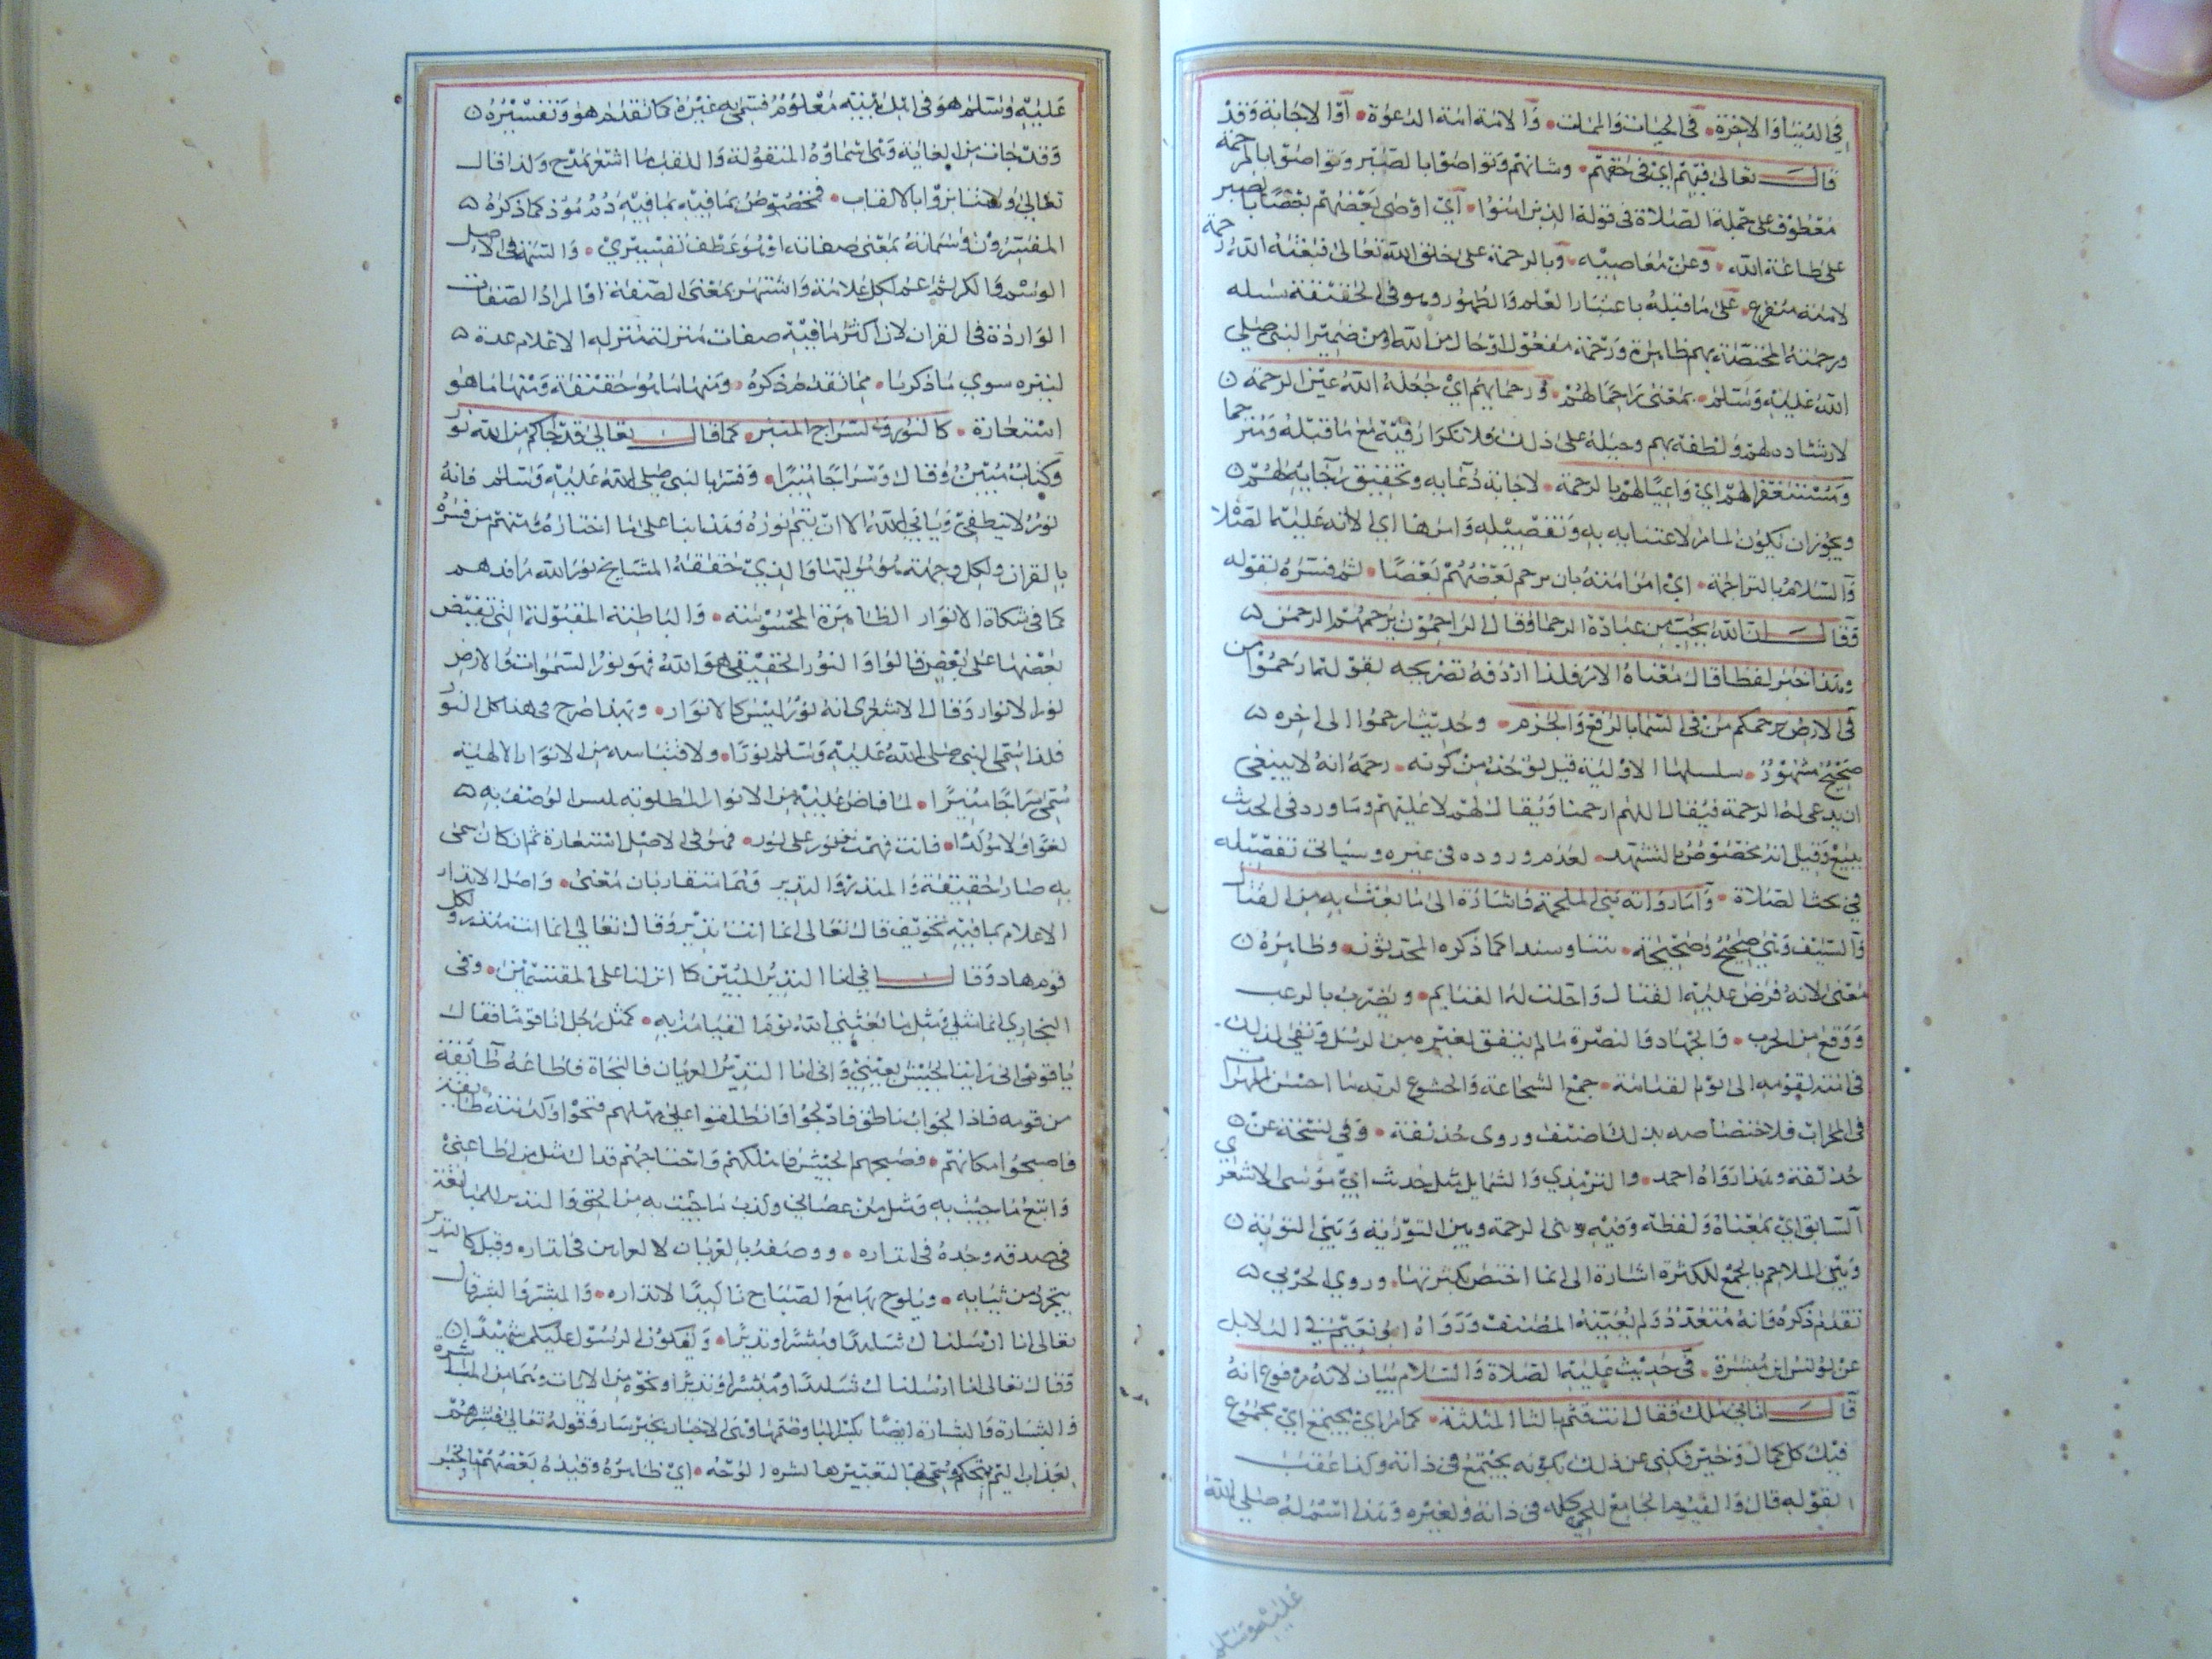 في الدنيا والاخرة في الحيات والممات والامة امة الدعوة او الاجابة وقد
قال تعالى فيهم اي في حقهم وشانهم وتواصوا بالصبر وتواصوا بالمرحمة
معطوف على جملة الصلاة في قوله الذين امنوا اي اوصى بعضهم بعضا بالصبر
على طاعة الله وعن معاصيه وبالرحمة على خلق الله تعالى فبعثه الله رحمة
لامته متفرع على ما قبله باعتبار العلم والظهور وهو في الحقيقة
ورحمته المختصة بهم ظاهرة ورحمة مفعول او حال من الله او من ضمير النبي صلى
الله عليه وسلم بمعنى راحما لهم ورحما بهم اي جعله الله عين الرحمة
لارشاده لهم ولطفه بهم وحمله على ذلك فلا تكرار فيه مع ما قبله ومترحما
ومستغفرا لهم اي داعيا لهم بالرحمة لاجابة دعايه وتحقيق رجايه لهم
ويجوز ان يكون لما مر لاعتنايه به وتفصيله وامرها اي لانه عليه الصلا
والسلام بالتراحم اي امر امته بان يرحم بعضهم بعضا ثم فسره بقوله
فقال ان الله يحب من عباده الرحما وقال الراحمون يرحمهم الرحمن
وهذا خبر لفظا قال معناه الامر فلذا اردفه تصريحه بقوله ارحموا من
في الارض يرحمكم من في السما بالرفع والجزم وحديث ارحموا الى اخره
صحيح مشهور سلسلها الاولية قيل يؤخذ من كونه رحمة انه لا ينبغي
ان يدعى له الرحمة فيقال اللهم ارحمنا ويقال لهم لا عليهم وما ورد في الحديث
وقيل انه مخصوص بالتشهد لعدم وروده في غيره وسياتي تفصيله
في بحث الصلاة واما رواية نبي الملحمة فاشارة الى ما بعث به من القتال
والسيف وهي صحيحة متنا وسندا كما ذكره المحدثون وظاهره
معنى لانه فرض عليه القتال واحلت له الغنايم ونصرت بالرعب
ووقع من الحرب والجهاد والنصرة ما لم يتفق لغيره من الرسل وبقي لذلك
في امته لقومه الى يوم القيامة جمع الشجاعة والخشوع لربه ما احسن المحراب
في المحراب فلاختصاصه بذلك وروى حذيفة وفي نسخة عن
حذيفة وهذا رواه احمد والترمذي والشمايل مثل حديث ابي موسى الاشعري
السابق اي بمعناه ولفظه وفيه ونبي الرحمة وبين التورية ونبي التوبة
ونبي الملاحم بالجمع للكثرة اشارة الى انما اختص بكثرتها وروى الحربي
تقدم ذكره وانه متعدد ولم يعينه المصنف ورواه ابو نعيم في الدلايل
عن يونس ابن ميسرة في حديث عليه الصلاة والسلام بيان لانه مرفوع انه
قال اتاني ملك فقال انت قثم بالثا المثلثة كما مر اي مجتمع اي مجموع
فيك كل كمال وخير فكني عن ذلك بكونه يجتمع في ذاته وكذا عقب
القوله قال والقثوم الجامع للخير كله في ذاته ولغيره وهذا اسم له صلى الله
عليه وسلم
عليه وسلم هو في اهل بيته معلوم فسمى به غيره كما تقدم هو وتفسيره
وقد جات من الغاية وهي سماوه المنقولة واللقب ما اشعر بمدح ولذا قال
تعالى ولا تنابزوا بالالقاب فمخصوص بما فيه ذم مؤذ كما ذكره
المفسرون وسماته بمعنى صفاته او هو عطف تفسيري والسمة في الاصل
الوسم والكي ثم عم لكل علامة واشتهر بمعنى الصفة او المراد الصفات
الواردة في القران لان اكثر ما فيه صفات منزلة منزلة الاعلام عدة
كثيرة سوي ما ذكرنا مما تقدم ذكره ومنها ما هو حقيقة ومنها ما هو
استعارة كالنور والسراج المنير كما قال تعالى قد جاكم من الله نور
وكتاب مبين وقال وسراجا منيرا وفسر بالنبي صلى الله عليه وسلم فانه
نور لا ينطفي ويابي الله الا ان يتم نوره وهذا بنا على ما اختاره ومنهم من فسره
بالقران ولكل وجهة هو موليها والذي حققه المشايخ نور الله مراقدهم
كما في مشكاة الانوار الظاهرة المحسوسة والباطنة المقبولة التي تفيض
بعضها على بعض قالوا والنور الحقيقي هو الله فهو نور السموات والارض
نور الانوار وقال الاشعري انه نور ليس كالانوار وبهذا طرح في هنا كل النور
فلذا سمي النبي صلى الله عليه وسلم نورا ولاقتباسه من الانوار الالهية
سمي سراجا منيرا لما فاض عليه من الانوار المطلوبة ليس الوصف به
لغوا ولا مؤكدا فانت فهمت نور على نور فهو في الاصل استعارة ثم ان كان سمي
به صار حقيقة والمنذر والنذير وهما متقاربان معنى واصل الانذار
الاعلام بما فيه تخويف قال تعالى انما انت نذير وقال تعالى انما انت منذر ولكل
قوم هاد وقال اني انا النذير المبين كما انزلنا على المقتسمين وفي
البخاري انما مثلي ومثل ما بعثني الله به كمثل رجل اتا قوما فقال
يا قومي اني رايت الجيش بعيني واني انا النذير العريان فالنجاة فاطاعه طايفة
من قومه فادلجوا فانطلقوا على مهلهم فنجوا وكذبته طايفة
فاصبحوا مكانهم فصبحهم الجيش فاهلكهم واجتاحهم فذلك مثل من اطاعني
واتبع ما جيت به ومثل من عصاني وكذب ما جيت به من الحق والنذير للمبالغة
في صدقه وحده في انذاره ووصفه بالعريان وقيل كالنذير
يتجرد من ثيابه ويلوح بها مع الصياح تاكيدا لانذاره والمبشر والبشير قال
تعالى انا ارسلناك شاهدا ومبشرا ونذيرا ويكون الرسول عليكم شهيدا
وقال تعالى انا ارسلناك شاهدا ومبشرا ونذيرا ونحوه من الايات وهما من البشرة
والبشارة والبشارة ايضا بكسر البا وضمها وهي الاخبار بخبر سار وقوله تعالى فبشرهم
بعذاب اليم تهكم وسمي بها لتغييرها بشرة الوجه اي ظاهره وقيده بعضهم بالخبر